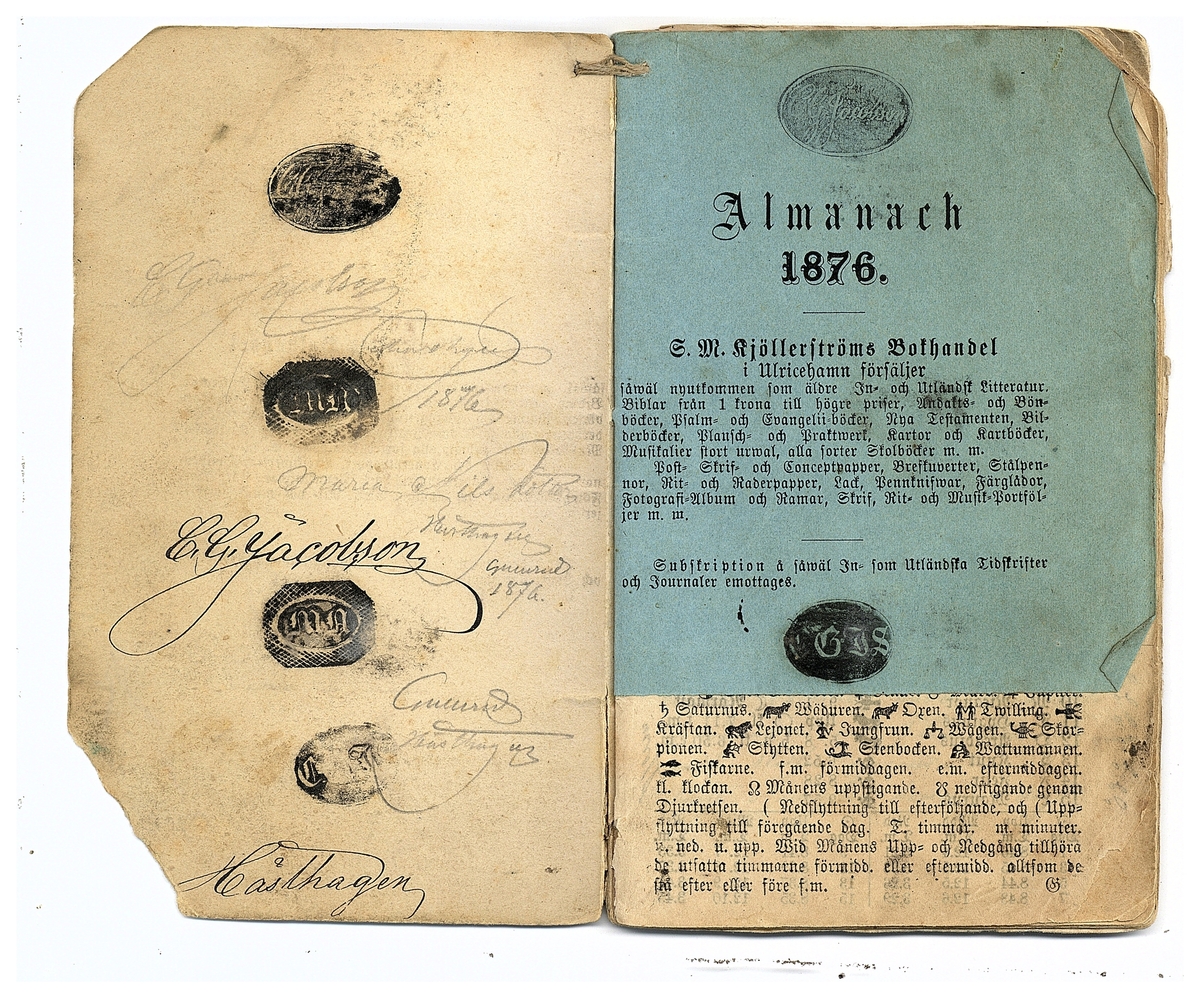 C. G. Jacobson
1876
MN
Maria Nils dotter
C. G. Jacobson
Hästhagen
Gunnred
1876.
MN
Gunnred
Hästhagen
Hästhagen
Almanach
1876.
S. M. Kjöllerströms Bokhandel
i Ulricehamn försäljer
såwäl nyutkommen som äldre In- och Utländsk Litteratur.
Biblar från 1 krona till högre priser, Andakts- och Bön-
böcker, Psalm- och Evangelii-böcker, Nya Testamenten, Bil-
derböcker, Plansch- och Praktwerk, Kartor och Kartböcker,
Musikalier stort urwal, alla sorter Skolböcker m. m.
Post- Skrif- och Conceptpapper, Brefkuverter, Stålpen-
nor, Rit- och Raderpapper, Lack, Pennknifwar, Färglådor,
Fotografi-Album och Ramar, Skrif, Rit- och Musik-Portföl-
jer m. m.
Subskription å såwäl In- som Utländska Tidskrifter
och Journaler emottages.
GJS
♄ Saturnus. Wäduren. Oxen. Twilling.
Kräftan. Lejonet. Jungfrun. Wågen. Skor-
pionen. Skytten. Stenbocken. Wattumannen.
Fiskarne. f.m. förmiddagen. e.m. eftermiddagen.
kl. klockan. ☊ Månens uppstigande. ☋ nedstigande genom
Djurkretsen. ( Nedflyttning till efterföljande, och ( Upp-
flyttning till föregående dag. T. timmar. m. minuter.
n. ned. u. upp. Wid Månens Upp- och Nedgång tillhöra
de utsatta timmarne förmidd. eller eftermidd. alltsom de
stå efter eller före f.m.